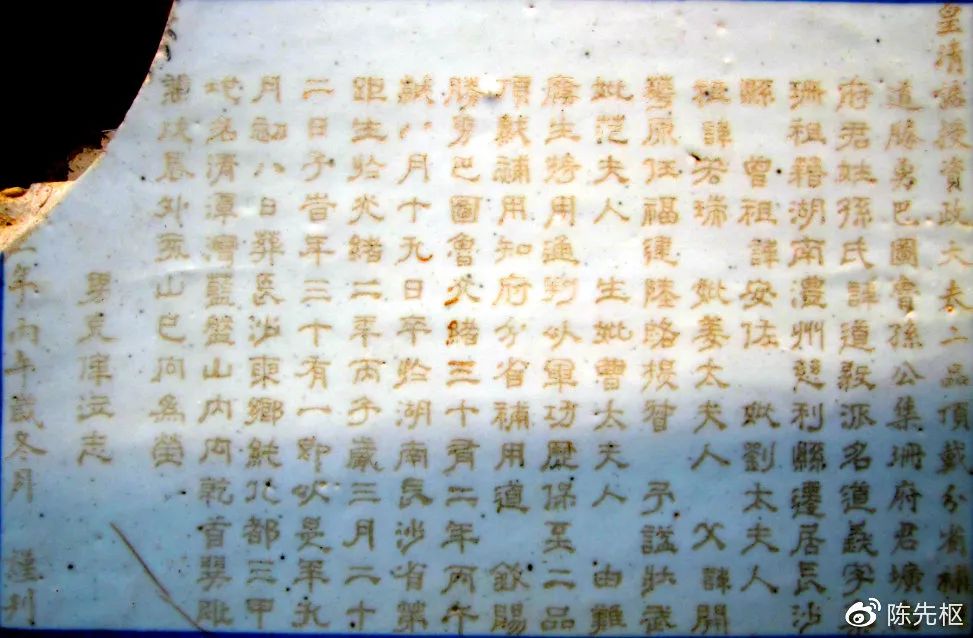 皇清誥授資政大夫二品頂戴分省補
道勝勇巴圖魯孫公集珊府君壙
府君姓孫氏諱道毅派名道義字
珊祖籍湖南澧州慈利縣遷居長沙
縣 曾祖諱安仕 妣劉太夫人
祖諱若瑞 妣姜太夫人 父諱開
華原任福建陸路提督 予諡壯武
妣范夫人 生妣曹太夫人 由難
廕生特用通判以軍功歷保至二品
頂戴補用知府分省補用道 欽賜
勝勇巴圖魯光緒三十有二年丙午
歲八月十九日卒於湖南長沙省第
距生於光緒二年丙子歲三月二十
二日子時年三十有一即以是年九
月初八日葬長沙東鄉純化都三甲
地名清潭灣藍盤山內向乾首巽趾
兼戌辰外亥山巳向為塋
男克 立志
年丙午歲冬月 謹刊
陈先枢